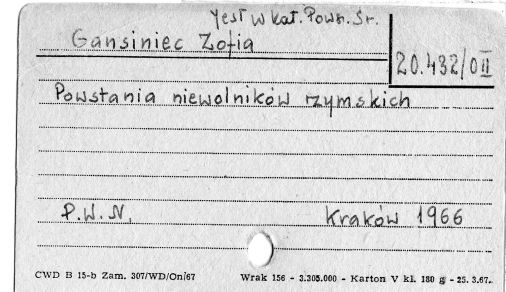 Yest w kat. Pown. Śr.
Gansiniec Zofia
20.432/0II
Powstania niewolników rzymskich
P.W.N.
Kraków 1966
CWD B 15-b Zam. 307/WD/On/67
Wrak 156 - 3.305.000 - Karton V kl. 180 g - 25. 3.67.